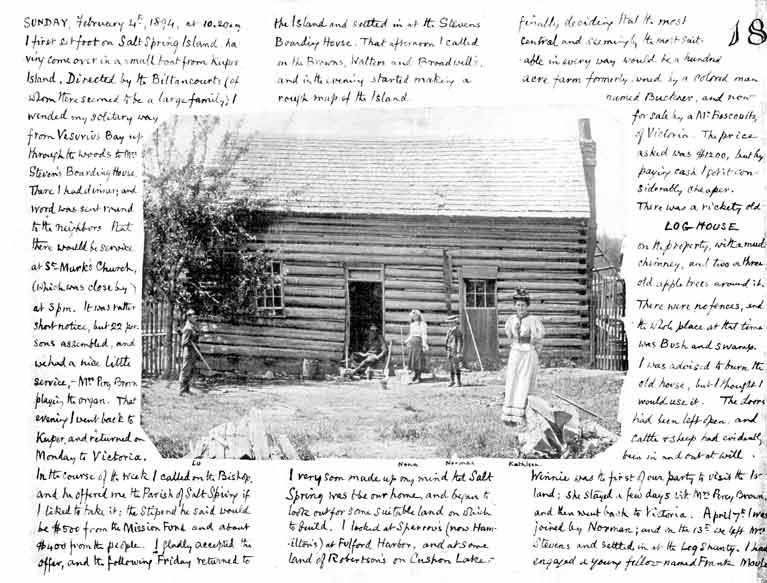 18
SUNDAY, February 4th, 1894, at 10.20 a.m.
I first set foot on Salt Spring Island, ha
ving come over in a small boat from Kuper
Island. Directed by the Billancourts (of
whom there seemed to be a large family) I
wended my solitary way
from Vesuvius Bay up
through the woods to Mrs
Stevens Boarding House.
There I had dinner, and
word was sent round
to the neighbors that
there would be service
at St Mark's Church,
(which was close by)
at 3 p.m. It was rather
short notice, but 22 per
sons assembled, and
we had a nice little
service, - Mrs Percy Brown
playing the organ. That
evening I went back to
Kuper, and returned on
Monday to Victoria.
In the course of the week I called on the Bishop,
and he offered me the Parish of Salt Spring if
I liked to take it; the stipend he said would
be $500 from the Mission Fund and about
$400 from the people. I gladly accepted the
offer, and the following Friday returned to
the Island and settled in at the Stevens
Boarding House. That afternoon I called
on the Browns, Walters and Broadwells,
and in the evening started making a
rough map of the Island.
Nona Norman Kathleen
I very soon made up my mind that Salt
Spring was to be our home, and began to
look out for some suitable land on which
to build. I looked at Sparrow's (now Ham-
ilton's) at Fulford Harbor, and at some
land of Robertson's on Cushon Lake -
finally deciding that the most
central and seemingly the most suit-
able in every way would be a hundred
acre farm formerly owned by a colored man
named Buckner, and now
for sale by a Mr
of Victoria. The price
asked was $1200, but by
paying cash I got it con-
siderably cheaper.
There was a rickety old
LOG HOUSE
on the property, with a mud
chimney, and two or three
old apple trees around it.
There were no fences, and
the whole place at that time
was Bush and swamp.
I was advised to burn the
old house, but I thought I
would use it. The doors
had been left open, and
cattle & sheep had evidently
been in and out at will.
Winnie was the first of our party to visit the Is
land; she stayed a few days with Mrs Percy Brown,
and then went back to Victoria. April 7th I was
joined by Norman; and on the 13th we left Mrs
Stevens and settled in at the Log Shanty. I had
engaged a young fellow named Frank